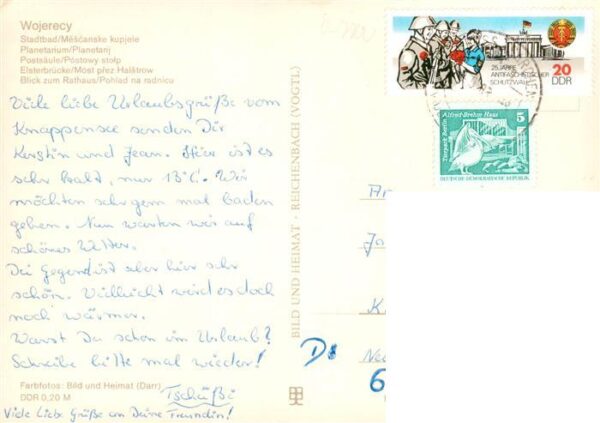 Wojerecy
Stadtbad/Měšćanske kupjele
Planetarium/Planetarij
Postsäule/Póstowy stołp
Elsterbrücke/Móst přez Halštrow
Blick zum Rathaus/Pohlad na radnicu
Viele liebe Urlaubsgrüße vom
Knappensee senden Dir
Kerstin und Jean. Hier ist es
sehr kalt, nur 13°C. Wir
möchten sehr gern mal baden
gehen. Nun warten wir auf
schönes Wetter.
Die Gegend ist aber hier sehr
schön. Vielleicht wird es doch
noch wärmer.
Warst Du schon im Urlaub?
Schreibe bitte mal wieder!
Tschüßi
Viele Liebe Grüße an Deine Freundin!
Farbfotos: Bild und Heimat (Darr)
DDR 0,20 M
BILD UND HEIMAT · REICHENBACH (VOGTL)
25 JAHRE
ANTIFASCHISTISCHER
SCHUTZWALL
20
DDR
Alfred-Brehm-Haus
Tierpark Berlin
5
DEUTSCHE DEMOKRATISCHE REPUBLIK
6